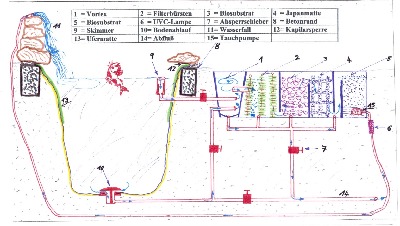 1 = Vortex 2 = Filterbürsten 3 = Biosubstrat 4 = Japanmatte
5 = Biosubstrat 6 = UVC-Lampe 7= Absperrschieber 8 = Betonrand
9 = Skimmer 10= Bodenablauf 11= Wasserfall 12= Kapilarsperre
13= Ufermatte 14= Abfluß 15= Tauchpumpe
11
12
8
9
1
2
3
4
5
13
15
6
7
10
14